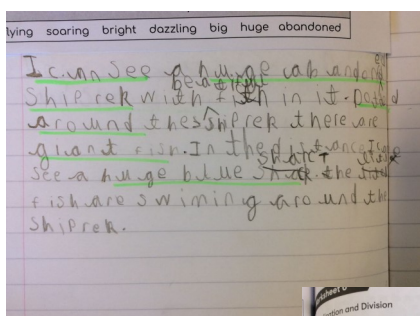 lying soaring bright dazzling big huge abandoned
I can see a huge
beatiful
Shiprek with fish in it.
around the shiprek there are
giant fish. In the
shark
see a huge blue the
fish are swiming around the
shiprek.
ation and Division